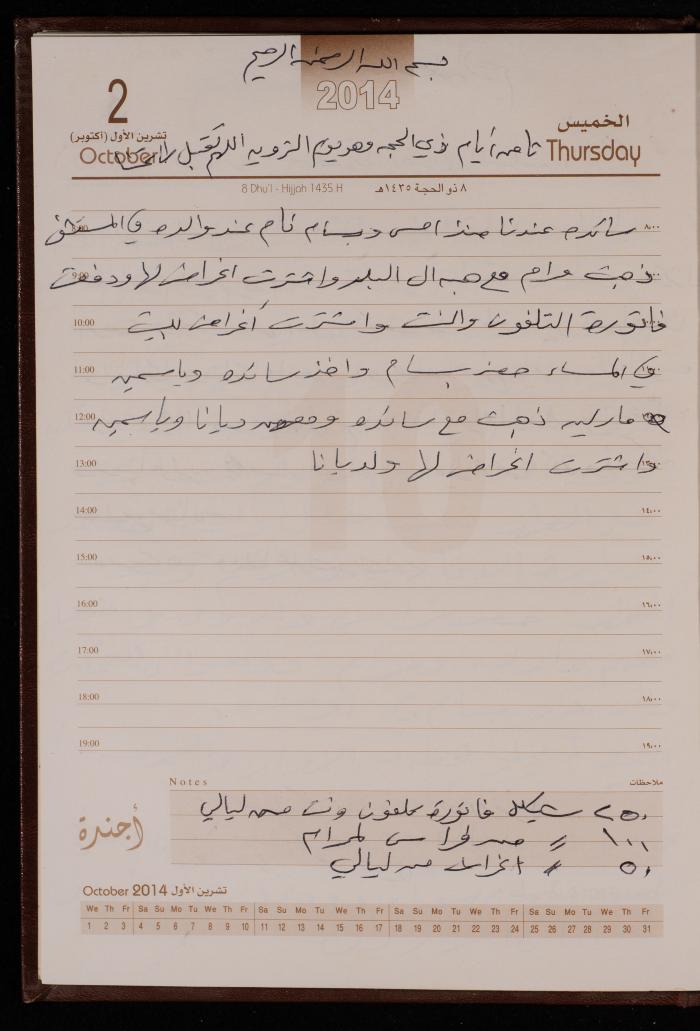 بسم الله الرحمن الرحيم
2014
2
تشرين الأول (أكتوبر)
October
الخميس
Thursday
ثامن أيام ذي الحجه وهو يوم الترويه اللهم تقبل
8 Dhu'l - Hijjah 1435 H
٨ ذو الحجة ١٤٣٥هـ
سائده عندنا منذ امس وبسام نام عند والده في المستشفى
ذهبت مرام مع هبه ال البلد واشترت اغراض لها ودفعت
فاتورة التلفون والنت واشترت أغراض للبيت
في المساء حضر بسام واخذ سائده وياسمين
مارلين ذهبت مع سائده ومعهن ديانا وياسمين
واشترت اغراض لها ولديانا
8:00 ٨:٠٠
9:00
10:00
11:00
12:00
13:00 ١٣:٠٠
14:00 ١٤:٠٠
15:00 ١٥:٠٠
16:00 ١٦:٠٠
17:00 ١٧:٠٠
18:00 ١٨:٠٠
19:00 ١٩:٠٠
Notes
ملاحظات
أجندة
٢٥٠ شيكل فاتورة تلفون ونت من ليالي
١٠٠ 〃 من فراس لمرام
٥٠ 〃 اغراض من ليالي
October 2014 تشرين الأول
We Th Fr Sa Su Mo Tu We Th Fr Sa Su Mo Tu We Th Fr Sa Su Mo Tu We Th Fr Sa Su Mo Tu We Th Fr
1 2 3 4 5 6 7 8 9 10 11 12 13 14 15 16 17 18 19 20 21 22 23 24 25 26 27 28 29 30 31